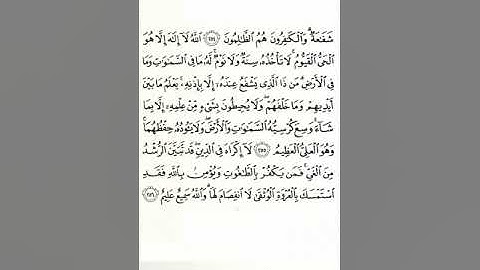 شَفَٰعَةٌ ۗ وَٱلْكَٰفِرُونَ هُمُ ٱلظَّٰلِمُونَ ﴿٢٥٤﴾ ٱللَّهُ لَآ إِلَٰهَ إِلَّا هُوَ
ٱلْحَىُّ ٱلْقَيُّومُ ۚ لَا تَأْخُذُهُۥ سِنَةٌ وَلَا نَوْمٌ ۚ لَّهُۥ مَا فِى ٱلسَّمَٰوَٰتِ وَمَا
فِى ٱلْأَرْضِ ۗ مَن ذَا ٱلَّذِى يَشْفَعُ عِندَهُۥٓ إِلَّا بِإِذْنِهِۦ ۚ يَعْلَمُ مَا بَيْنَ
أَيْدِيهِمْ وَمَا خَلْفَهُمْ ۖ وَلَا يُحِيطُونَ بِشَىْءٍ مِّنْ عِلْمِهِۦٓ إِلَّا بِمَا
شَآءَ ۚ وَسِعَ كُرْسِيُّهُ ٱلسَّمَٰوَٰتِ وَٱلْأَرْضَ ۖ وَلَا يَـُٔودُهُۥ حِفْظُهُمَا ۚ
وَهُوَ ٱلْعَلِىُّ ٱلْعَظِيمُ ﴿٢٥٥﴾ لَآ إِكْرَاهَ فِى ٱلدِّينِ ۖ قَد تَّبَيَّنَ ٱلرُّشْدُ
مِنَ ٱلْغَىِّ ۚ فَمَن يَكْفُرْ بِٱلطَّٰغُوتِ وَيُؤْمِنۢ بِٱللَّهِ فَقَدِ
ٱسْتَمْسَكَ بِٱلْعُرْوَةِ ٱلْوُثْقَىٰ لَا ٱنفِصَامَ لَهَا ۗ وَٱللَّهُ سَمِيعٌ عَلِيمٌ ﴿٢٥٦﴾